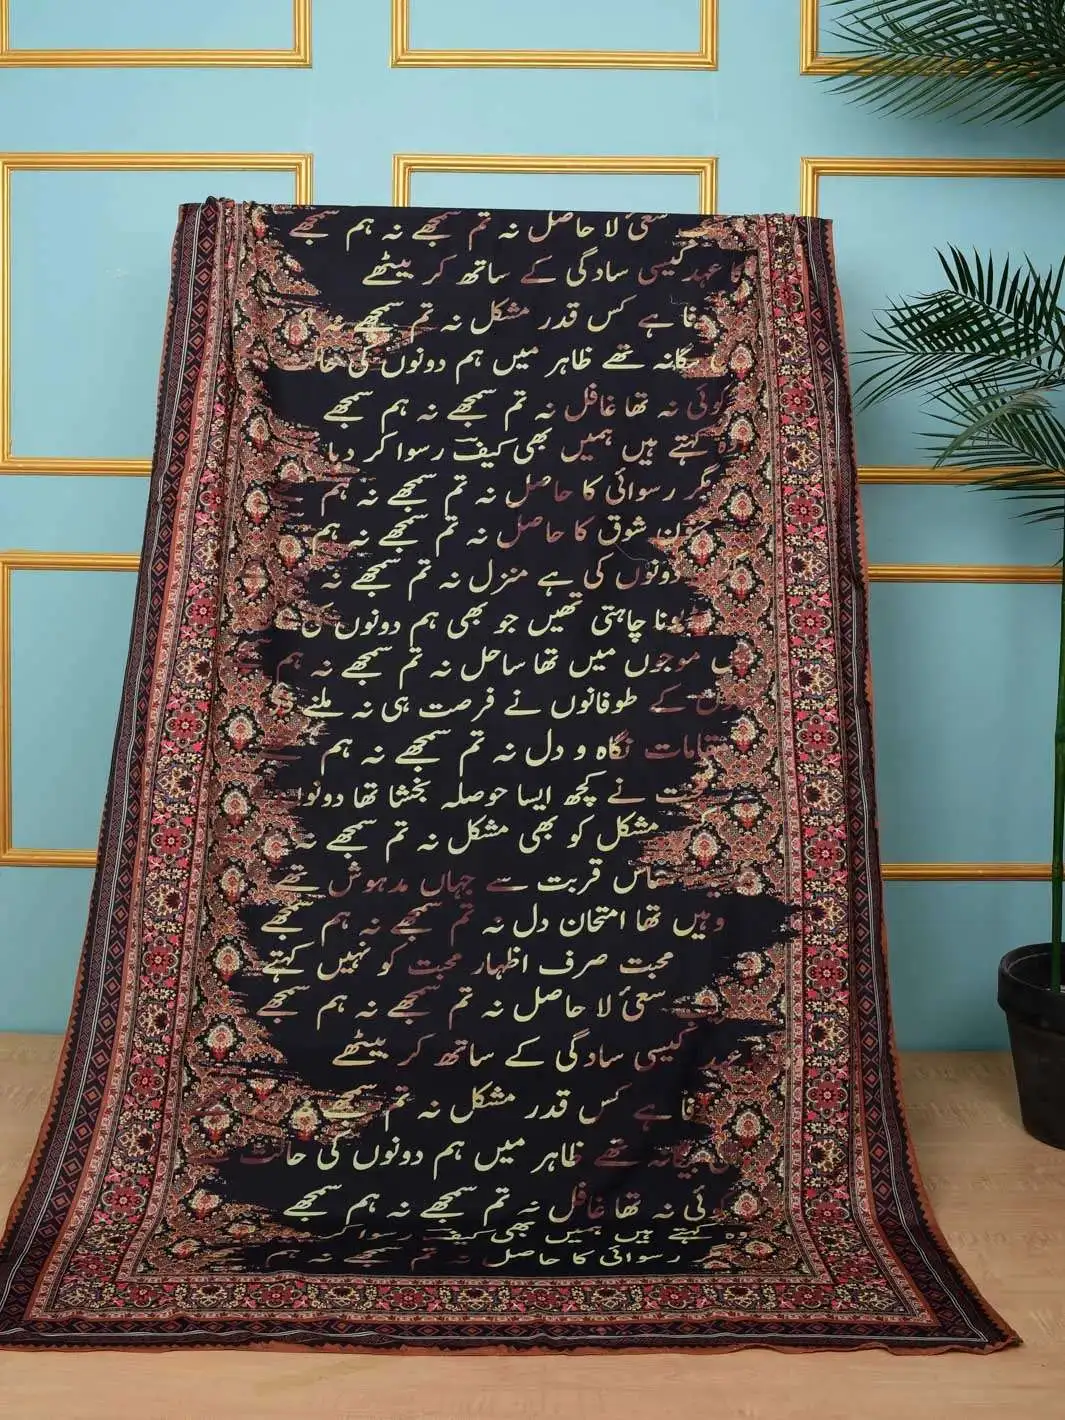 سعیٔ لا حاصل نہ تم سمجھے نہ ہم سمجھے
کا عہد کیسی سادگی کے ساتھ کر بیٹھے
وفا ہے کس قدر مشکل نہ تم سمجھے نہ ہم
بیگانہ تھے ظاہر میں ہم دونوں کی حالت
کوئی نہ تھا غافل نہ تم سمجھے نہ ہم سمجھے
وہ کہتے ہیں ہمیں بھی کیف رسوا کر دیا
مگر رسوائی کا حاصل نہ تم سمجھے نہ ہم سمجھے
شوق کا حاصل نہ تم سمجھے نہ ہم
دونوں کی ہے منزل نہ تم سمجھے نہ
ہونا چاہتی تھیں جو بھی ہم دونوں کی
موجوں میں تھا ساحل نہ تم سمجھے نہ ہم سمجھے
کے طوفانوں نے فرصت ہی نہ ملنے دی
مقامات نگاہ و دل نہ تم سمجھے نہ ہم سمجھے
نے کچھ ایسا حوصلہ بخشا تھا دونوں
مشکل کو بھی مشکل نہ تم سمجھے نہ
قربت سے جہاں مدہوش تھے
وہیں تھا امتحان دل نہ تم سمجھے نہ ہم سمجھے
محبت صرف اظہار محبت کو نہیں کہتے
سعیٔ لا حاصل نہ تم سمجھے نہ ہم سمجھے
عہد کیسی سادگی کے ساتھ کر بیٹھے
وفا ہے کس قدر مشکل نہ تم سمجھے
بیگانہ تھے ظاہر میں ہم دونوں کی حالت
کوئی نہ تھا غافل نہ تم سمجھے نہ ہم سمجھے
وہ کہتے ہیں ہمیں بھی کیف رسوا کر
رسوائی کا حاصل نہ تم سمجھے نہ ہم